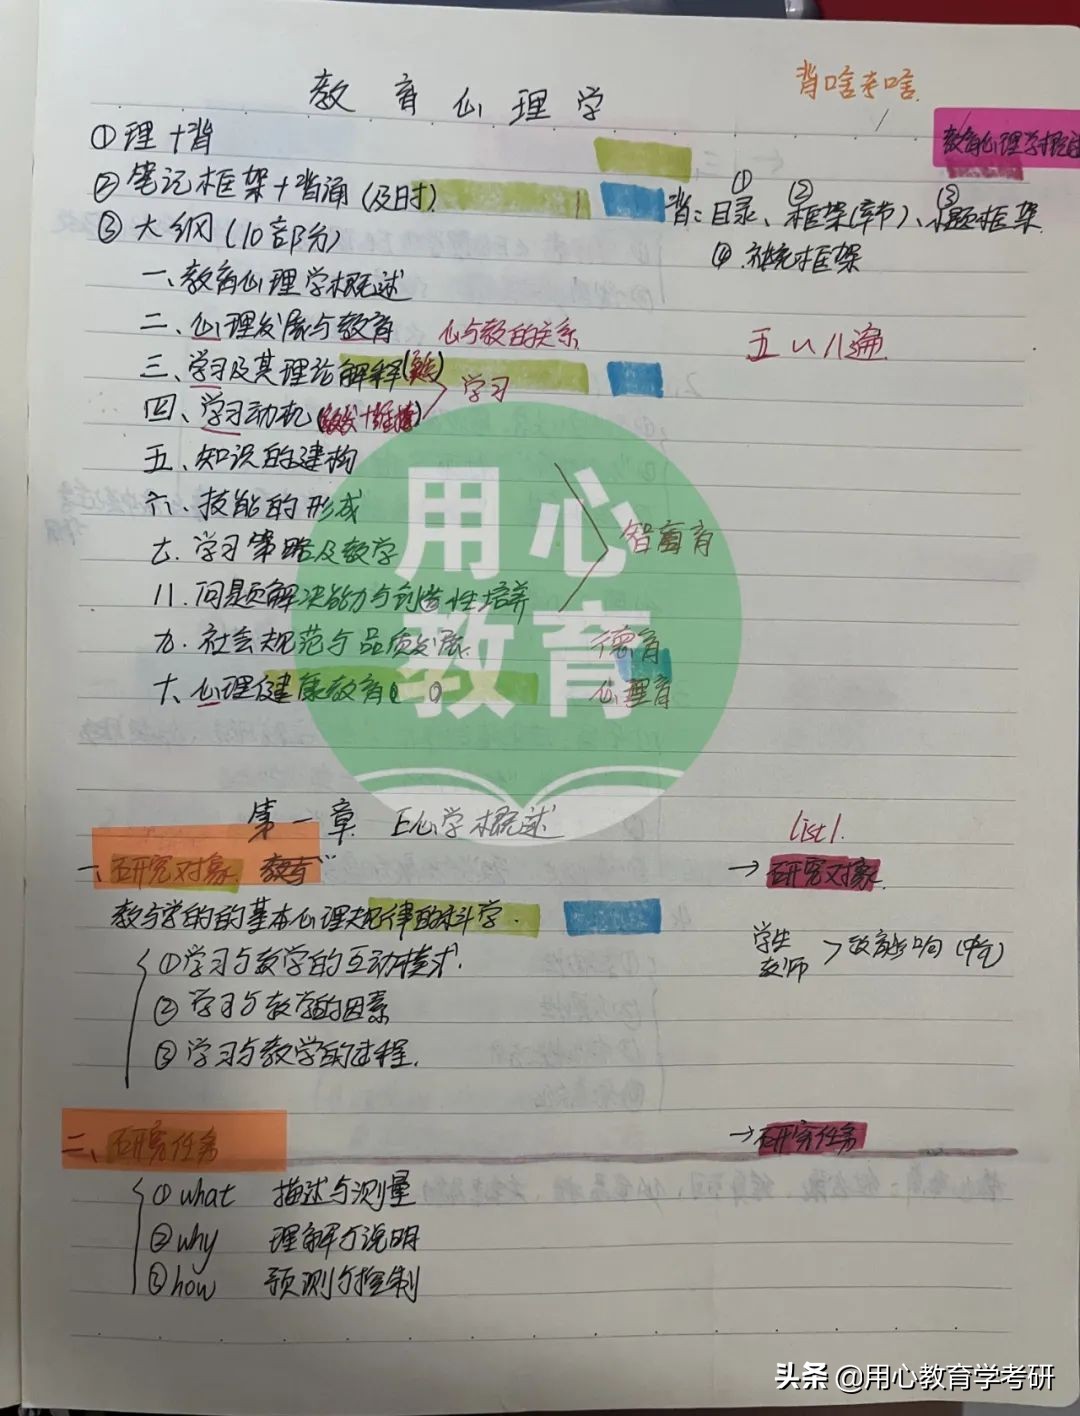 教育心理学
背啥考啥
教育心理学概述
①理+背
②笔记框架+背诵(及时)
背：①目录、②框架(章节)、③标题框架
③大纲(10部分)
④补充框架
一、教育心理学概述
二、心理发展与教育 心与教的关系
五~八遍
三、学习及其理论解释(难)
学习
四、学习动机(激发+维持)
五、知识的建构
六、技能的形成
智育
七、学习策略及教学
八、问题解决能力与创造性培养
九、社会规范与品质发展 德育
十、心理健康教育 心理育
用心
教育
第一章 心学概述
list1.
一、研究对象 教育
→研究对象
教与学的的基本心理规律的科学.
①学习与教学的互动模式.
学生
教师
②学习与教学的因素
③学习与教学的过程.
二、研究任务
→研究任务
①what 描述与测量
②why 理解与说明
③how 预测与控制
头条 @用心教育学考研